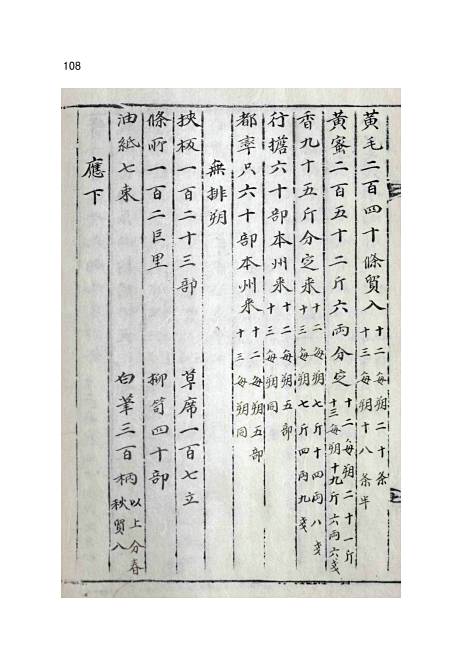 108
黃毛二百四十條貿入十二每朔二十条十三每朔十八条半
黃蜜二百五十二斤六兩分定十二每朔二十一斤十三每朔十九斤六兩六戔
香九十五斤分定來十二每朔七斤十四兩八戔十三每朔七斤四兩九戔
行擔六十部本州來十二每朔五部十三每朔同
都率只六十部本州來十二每朔五部十三每朔同
無排朔
挾板一百二十三部 草席一百七立
條所一百二巨里 柳笥四十部
油紙七束 白筆三百柄以上分春秋貿入
應下